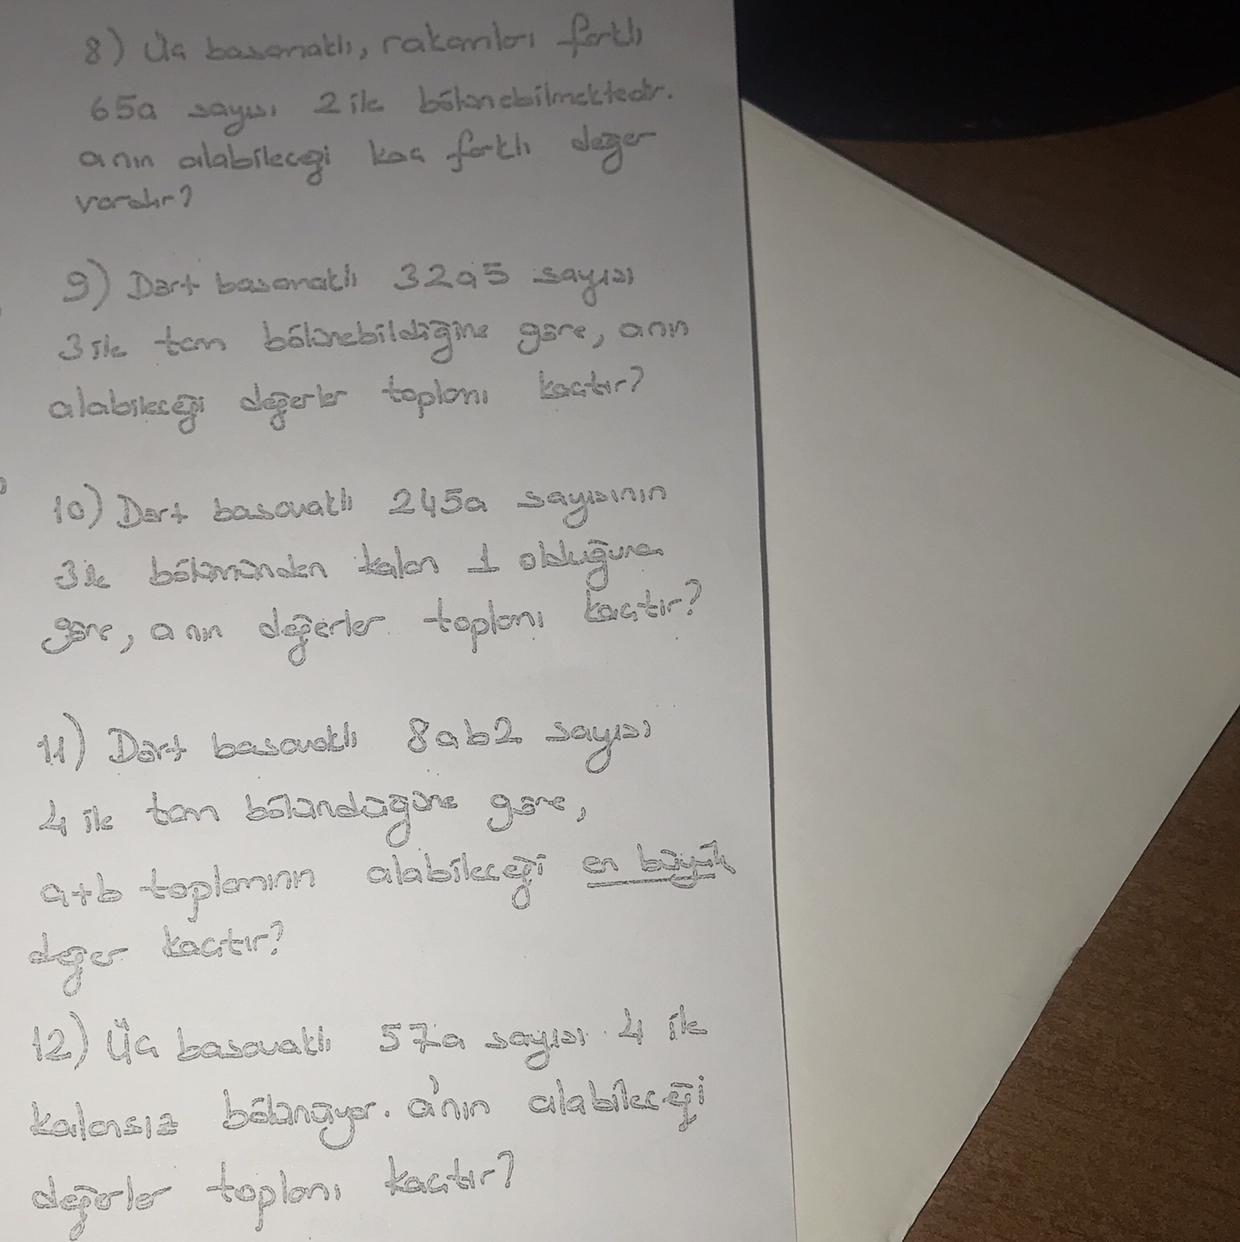 8) Üç basamaklı, rakamları farklı
65a sayısı 2 ile bölünebilmektedir.
a nın alabileceği kaç farklı değer
vardır?
9) Dört basamaklı 32a5 sayısı
3 ile tam bölünebildiğine göre, a nın
alabileceği değerler toplamı kaçtır?
10) Dört basamaklı 245a sayısının
3 ile bölümünden kalan 1 olduğuna
göre, a nın değerler toplamı kaçtır?
11) Dört basamaklı 8ab2 sayısı
4 ile tam bölündüğüne göre,
a+b toplamının alabileceği en büyük
değer kaçtır?
12) Üç basamaklı 57a sayısı 4 ile
kalansız bölünüyor. a'nın alabileceği
değerler toplamı kaçtır?